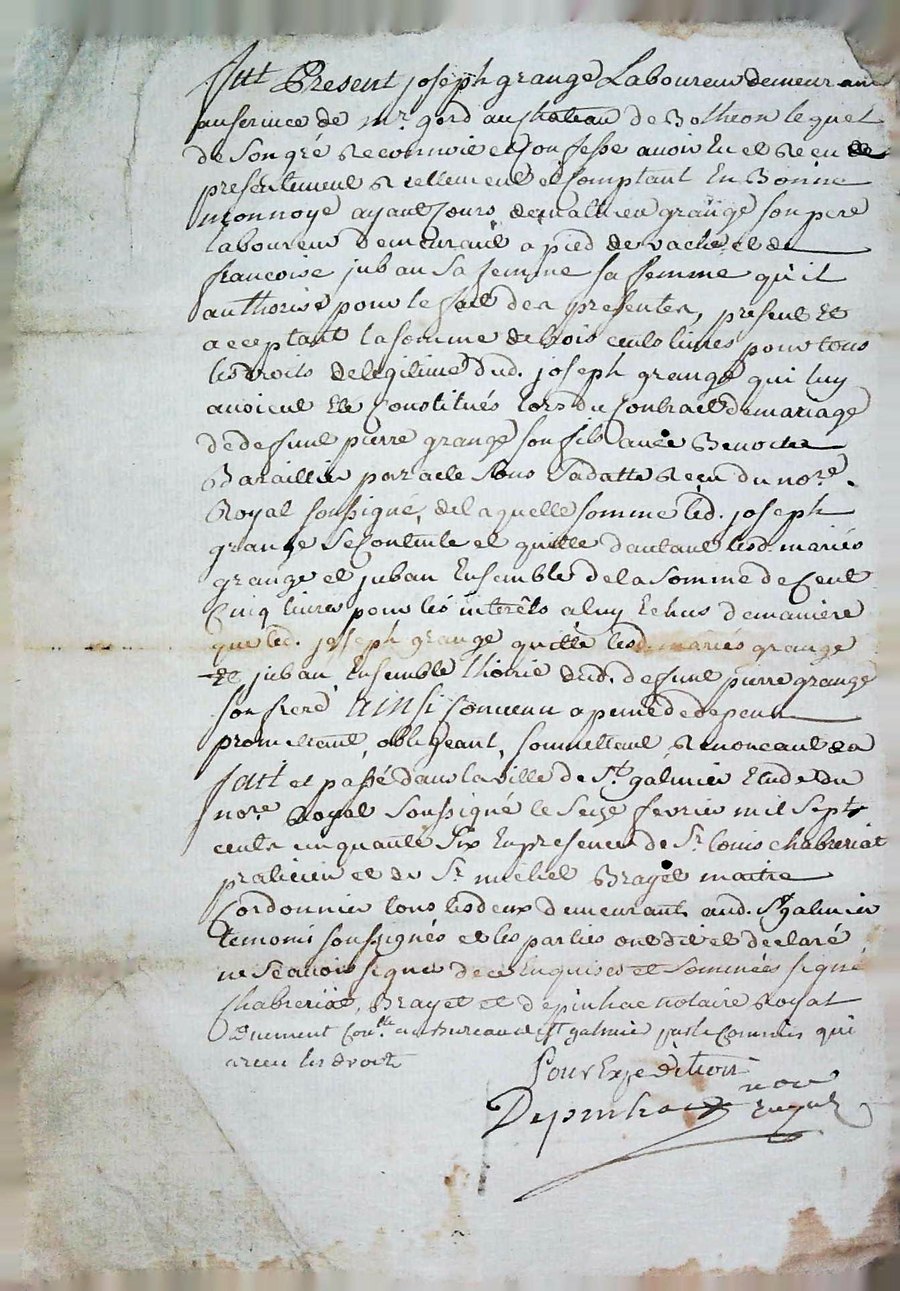 fut Present joseph grange Laboureur demeurant
au service de mr. gord au chateau de Botheon lequel
de son gré Reconnoit et Confesse avoir Eu et Reçu
presentement Reellement et Comptant En Bonne
monnoye ayant Cours de mathieu grange son pere
laboureur demeurant a pied de vache et de
francoise juban sa femme sa femme qu'il
authorise pour le fait des presentes, present et
acceptant la somme de trois cents livres pour tous
les droits de legitime dud. joseph grange qui luy
avoient Eté Constitués lors du Contract de mariage
de defunt pierre grange son fils avec Benoite
Baraillier par acte sous sa datte Reçu du nore.
Royal soussigné, de laquelle somme led. joseph
grange se Contente et quitte d'autant lesd. mariés
grange et juban Ensemble de la somme de Cent
Cinq livres pour les interêts a luy Echus de maniere
que led. joseph grange quitte lesd. mariés grange
et juban Ensemble l'hoirie dud. defunt pierre grange
son frere, ainsi Convenu a peine de depens
promettant, obligeant, soumettant Renonceant &a
fait et passé dans la ville de St. galmier Etude du
nore. Royal soussigné le seize fevrier mil sept
cents cinquante six En presence de Sr. louis chabreriat
praticien et de Sr. michel Brayet maitre
Cordonnier tous les deux demeurants aud. St. galmier
temoins soussignés et les parties ont dit et declaré
ne sçavoir signer de ce Enquises et Sommées signé
Chabreriat, Brayet et depinhac notaire Royal
au Bureau de St galmier par le Commis qui
a reçu les droits
Pour Expedition
Depinhac nore
Royal